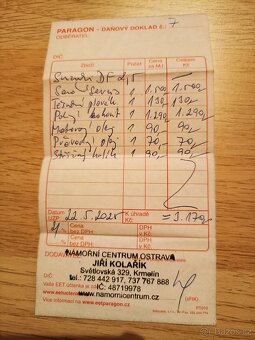 PARAGON - DAŇOVÝ DOKLAD č.: 7
ODBĚRATEL:
DIČ:
Zboží Počet Cena za MJ Celkem Kč
Suzuki DF 2,5
Sada Servis 1 1.500 1.500
1 130 130
1 1.290 1.290
Motorový olej 1 90 90
Převodový olej 1 70 70
1 90 90
Datum UZP 22.5.2025 K úhradě Kč = 3.170
Cena bez DPH DPH v Kč
Cena bez DPH DPH v Kč
DODAVATEL
NÁMOŘNÍ CENTRUM OSTRAVA
JIŘÍ KOLAŘÍK
Světlovská 329, Krmelín
tel.: 728 442 917, 737 767 888
IČ: 48719137
www.namornicentrum.cz
DIČ:
Vaše EET účtenka je
Více informací na www.eetparagon.cz